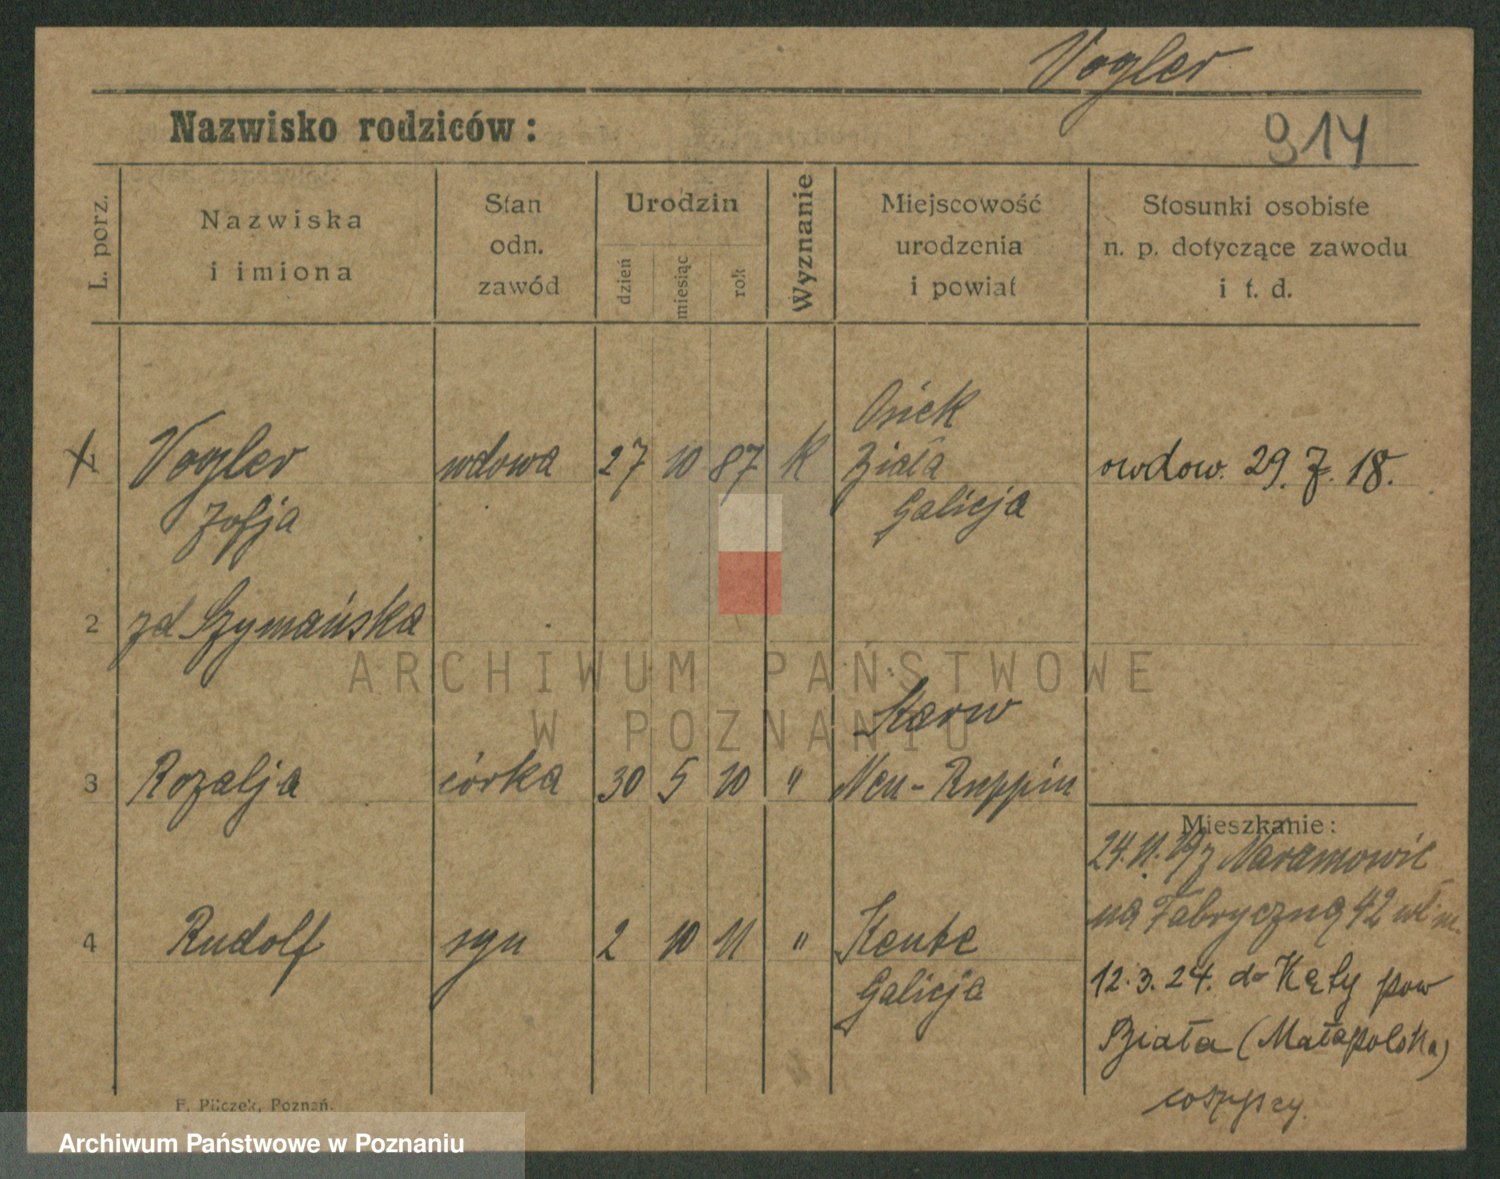 Vogler
Nazwisko rodziców:
914
L. porz.
Nazwiska
i imiona
Stan
odn.
zawód
Urodzin
dzień
miesiąc
rok
Wyznanie
Miejscowość
urodzenia
i powiat
Stosunki osobiste
n. p. dotyczące zawodu
i t. d.
1 Vogler wdowa 27 10 87 K Osiek owdow. 29. 7. 18.
Zofja Biała
Galicja
2 zd Szymańska
Karw
3 Rozalja córka 30 5 10 " Neu-Ruppin
Mieszkanie:
24. 11. 19 z Naramowic
na Fabryczną 42 wł m.
4 Rudolf syn 2 10 11 " Kente
Galicja
12. 3. 24. do Kęty pow
Biała (Małapolska)
wszyscy.
F. Pilczek, Poznań.
ARCHIWUM PAŃSTWOWE
W POZNANIU
Archiwum Państwowe w Poznaniu